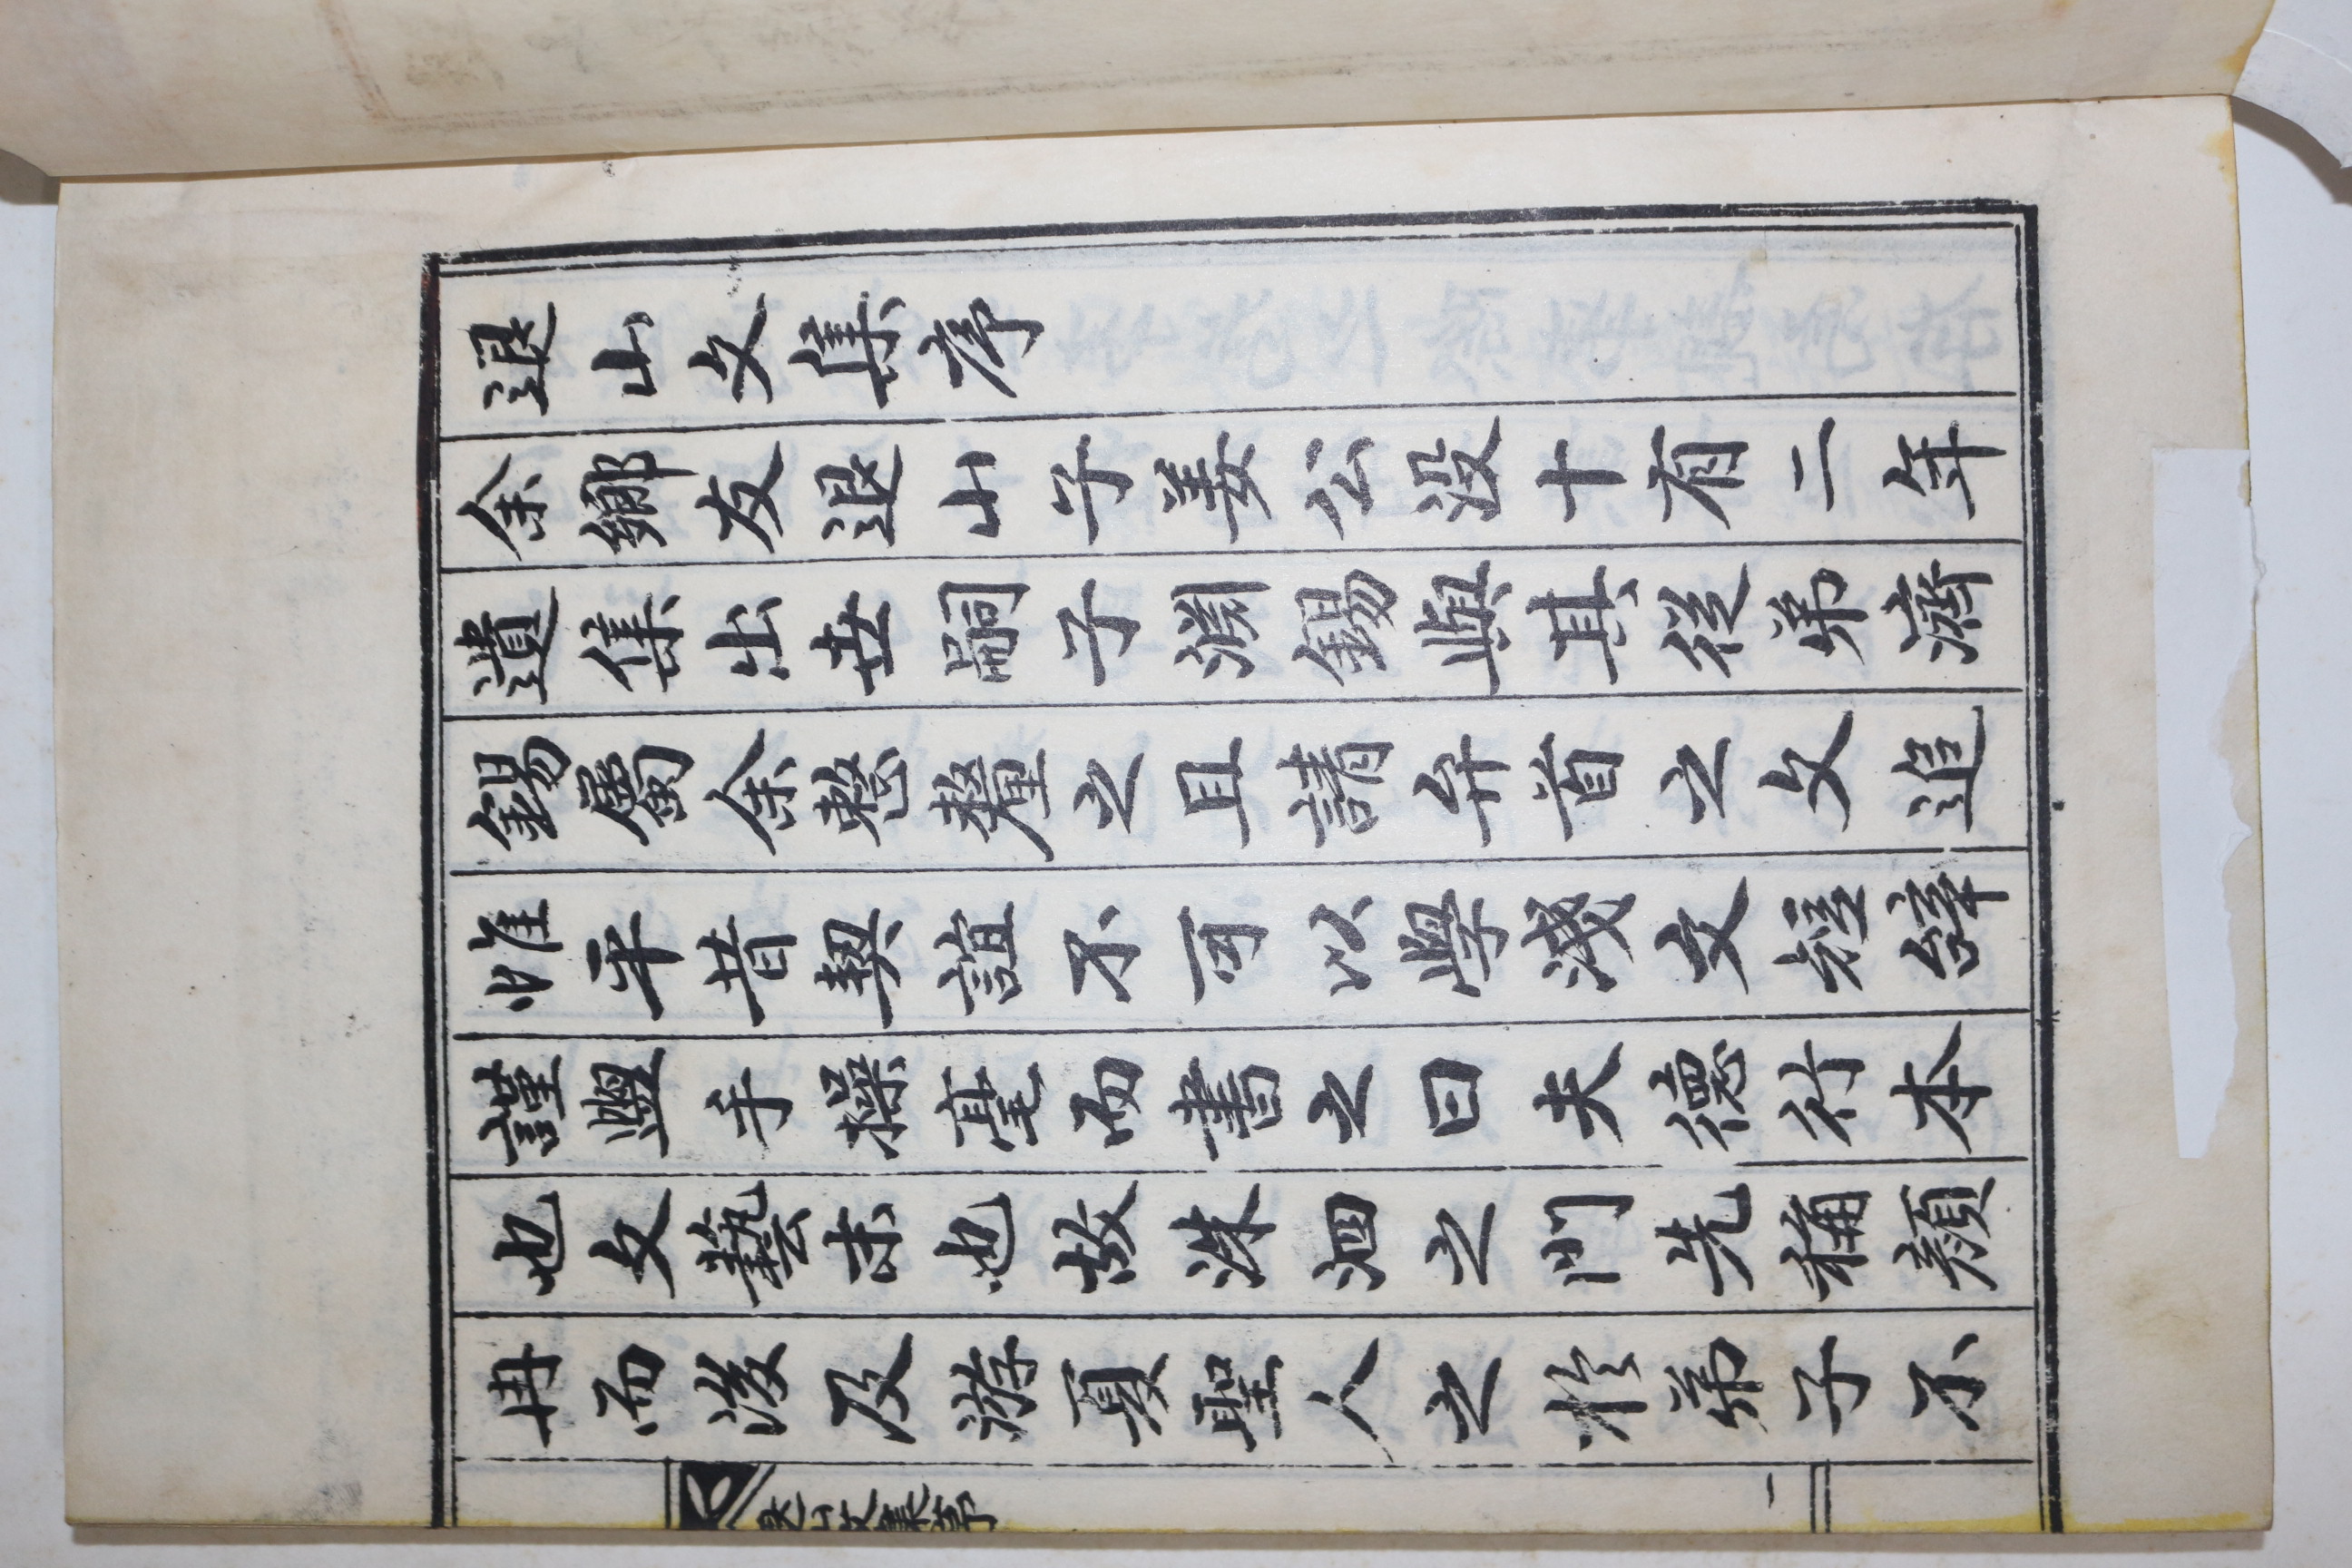 退山文集序
余鄉友退山子姜公没十有二年
遺集出世嗣子淵錫與其從弟濟
錫屬余憗釐之且請弁首之文追
惟平昔契誼不可以學淺文短辭
謹盥手操毫而書之曰夫德行本
也文藝末也故洙泗之門先稱顏
冉而後及游夏聖人之於弟子不
退山文集序 一